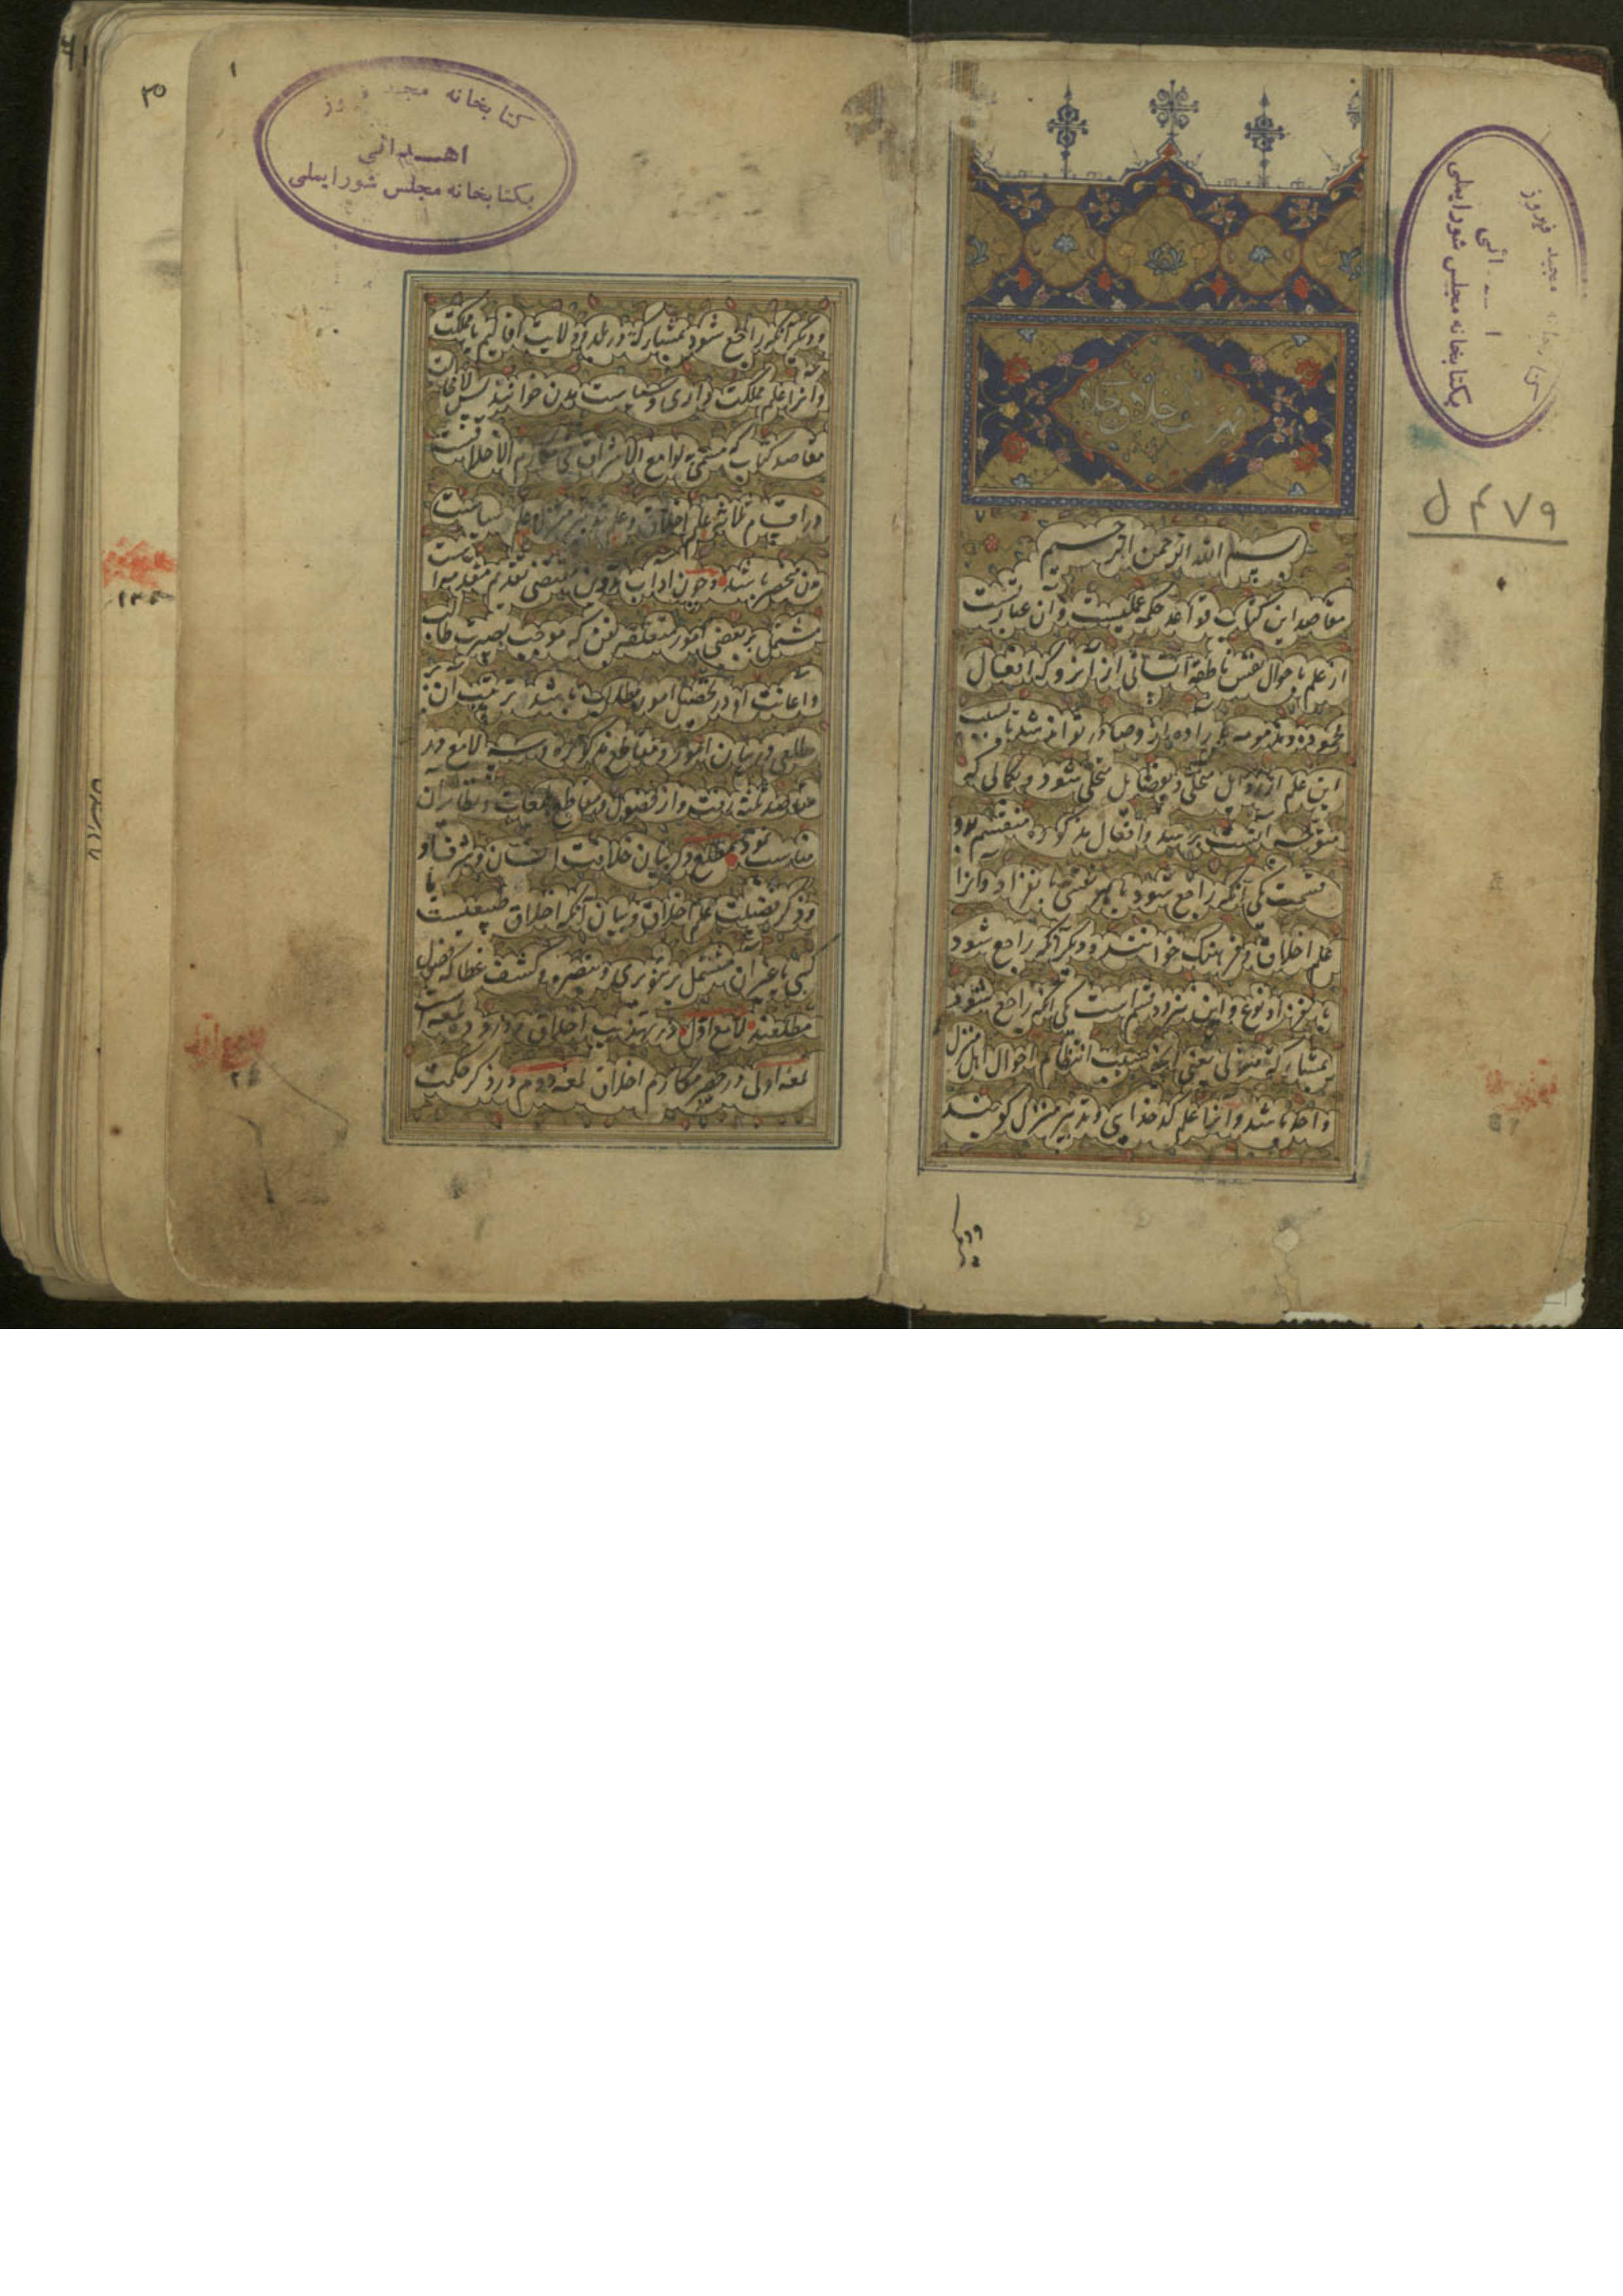 کتابخانه مجید فیروز
ا ئی
بکتابخانه مجلس شورایملی
۴۷۹ ل
بسم الله الرحمن الرحیم
مقاصد این کتاب قواعد حکمة عملیست و آن عبارتست
از علم باحوال نفس ناطقه انسانی از آنرو که افعال
محموده و مذمومه بارادهٔ از و صادر تواند شد تا بسبب
این علم از رذایل متخلی و بفضایل متحلی شود و بکمالی که
متوجه آنست برسد و افعال مذکوره منقسم بدو
قسمت یکی آنکه راجع شود با هر نفسی بانفراد و آنرا
علم اخلاق و فرهنک خوانند و دیگر آنکه راجع شود
باید نفر از نوع و این نیز دو قسم است یکی آنکه راجع شود
بمشارکة منزلی یعنی آنچه سبب انتظام احوال اهل منزل
واحد باشد و آنرا علم کدخدایی و تدبیر منزل گویند
ودیگر
۱
۳۵
کتابخانه مجید فیروز
اهدائی
بکتابخانه مجلس شورایملی
و دیگر آنکه راجع شود بمشارکة در بلد و ولایت اقالیم یا مملکت
و آنرا علم مملکت داری و سیاست مدن خوانند پس لامحاله
مقاصد کتاب که مسمی به لوامع الاشراق فی مکارم الاخلاقست
در اقسام ثلاثه علم اخلاق و علم تدبیر منزل و علم سیاست
مدن منحصر باشد و چون آداب تدوین مقتضی تقدیم مقدمه ایست
مشتمل بر بعضی امور متعلقه بفن که موجب بصیرت طالب
و اعانت او در تحصیل امور مطلوب باشد ترتیب آن بر
مطلعی در بیان امور و مقاطع مذکوره و سه لامع در
مقاصد ثلثه رفت و از فصول و مقاطع بلمعات و نظایر آن
مناسب نمود مطلع در بیان خلافت انسان و شرف او
و ذکر فضیلت علم اخلاق و بیان آنکه اخلاق طبیعیست یا
کسبی یا غیر آن مشتمل بر تنویری و تبصره و کشف غطا که فصول
مطلعند لامع اول در تهذیب اخلاق و درو ده لمعه است
لمعه اولی در حصر مکارم اخلاق لمعه دوم در ذکر حکمت